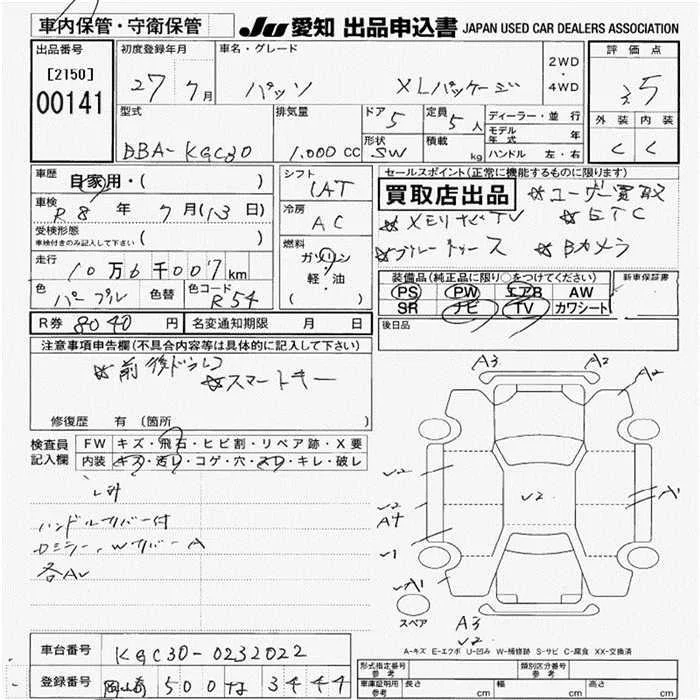 車内保管・守衛保管
JU 愛知 出品申込書 JAPAN USED CAR DEALERS ASSOCIATION
出品番号 初度登録年月 車名・グレード 2WD・4WD 評価点
[2150]
00141 27 7月 パッソ XLパッケージ 3.5
型式 排気量 ドア 5 定員 5人 ディーラー・並行 外装 内装
モデル年式 年
DBA-KGC30 1.000cc 形状 SW 積載 kg ハンドル 左・右 C C
車歴 自家用・( ) シフト IAT セールスポイント(正常に機能するものに限ります)
買取店出品 ☆ユーザー買取
車検 R8年 7月(13日) 冷房 AC ☆メモリナビTV ☆ETC
受検形態 車検付きのみ記入して下さい ( )
燃料 ガソリン 軽・油 ( ) ☆ブルートゥース ☆Bカメラ
走行 10万6千007km
装備品(純正品に限り○をつけてください) 新車保証書
色 パープル 色替 色コード R54
PS PW エアB AW
SR ナビ TV カワシート
R券 8040円 名変通知期限 月 日
後日品
注意事項申告欄(不具合内容等は具体的に記入して下さい)
☆前後ドラレコ
☆スマートキー
修復歴 有(箇所
A3 A2 A2
検査員記入欄 FW キズ・飛石・ヒビ割・リペア跡・X要
内装 キズ・汚レ・コゲ・穴・スレ・キレ・破レ
ハンドルカバー付
各AU
スペア
A3
A-キズ E-エクボ U-凹み W-補修跡 S-サビ C-腐食 XX-交換済
車台番号 KGC30-0232022
登録番号 500 な 3444
形式指定番号 参考 類別区分番号 参考
車庫証明用 参考 長さ cm 幅 cm 高さ cm